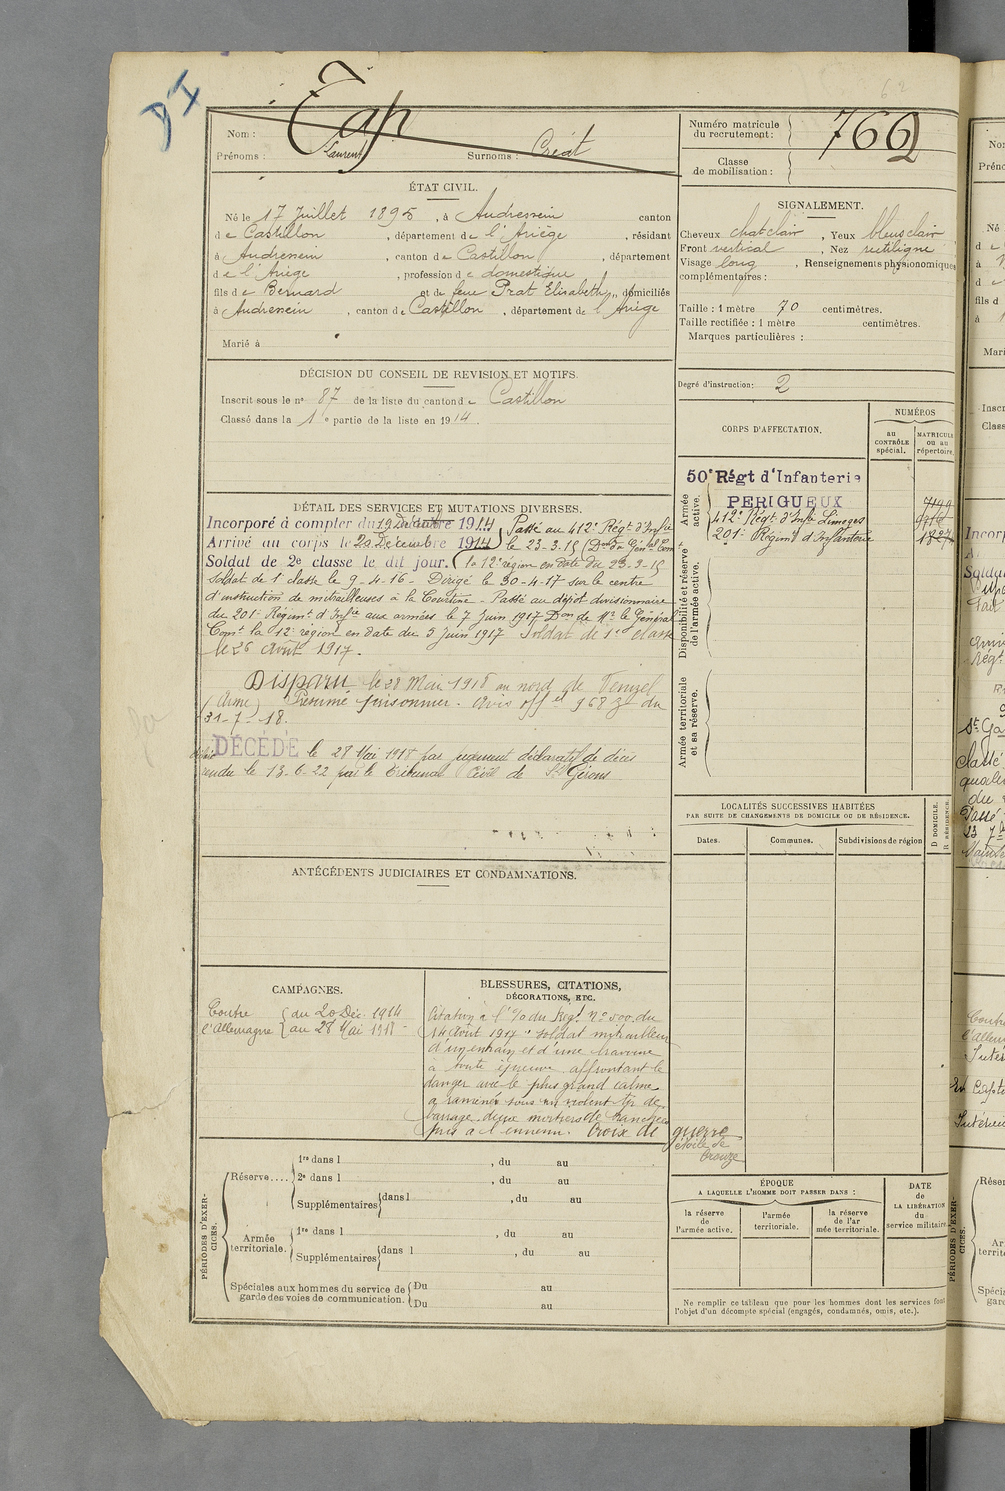 P'I
62
Nom : Tap
Prénoms : Laurent Surnoms : Créat
Numéro matricule
du recrutement : 766
Classe
de mobilisation :
ÉTAT CIVIL.
Né le 17 Juillet 1895, à Audressein canton
de Castillon, département de l'Ariège, résidant
à Audressein, canton de Castillon, département
de l'Ariège, profession de domestique
fils de Bernard et de feue Prat Elisabeth, domiciliés
à Audressein, canton de Castillon, département de l'Ariège
Marié à
SIGNALEMENT.
Cheveux chat clair, Yeux bleus clair
Front vertical, Nez rectiligne
Visage long, Renseignements physionomiques
complémentaires :
Taille : 1 mètre 70 centimètres.
Taille rectifiée : 1 mètre centimètres.
Marques particulières :
DÉCISION DU CONSEIL DE REVISION ET MOTIFS.
Inscrit sous le n° 87 de la liste du canton de Castillon
Classé dans la 1e partie de la liste en 1914.
Degré d'instruction : 2
CORPS D'AFFECTATION.
NUMÉROS
au
CONTRÔLE
spécial.
MATRICULE
ou au
répertoire.
Armée
active.
50e Régt d'Infanterie
PERIGUEUX
412e Régt d'Infie Limoges
201e Régiment d'Infanterie
Disponibilité et réserve
de l'armée active.
Armée territoriale
et sa réserve.
DÉTAIL DES SERVICES ET MUTATIONS DIVERSES.
Incorporé à compter du 19 Décembre 1914 Passé au 412e Régt d'Infie
Arrivé au corps le 20 Décembre 1914 le 23-3-15 (Don du Génal Comt
Soldat de 2e classe le dit jour. la 12e région en date du 23-3-15
Soldat de 1e classe le 9-4-16 - Dirigé le 30-4-17 sur le centre
d'instruction de mitrailleuses à la Courtine - Passé au dépôt divisionnaire
du 201e Régimt d'Infie aux armées le 7 Juin 1917 Don de Mr le Général
Comt la 12e région en date du 5 Juin 1917 Soldat de 1e classe
le 26 Août 1917.
Disparu le 28 Mai 1918 au nord de Venizel
(Aisne) Présumé prisonnier. Avis offel du
31-7-18.
DÉCÉDÉ le 28 Mai 1918 par jugement déclaratif de décès
rendu le 13-6-22 par le Tribunal Civil de St Girons
LOCALITÉS SUCCESSIVES HABITÉES
PAR SUITE DE CHANGEMENTS DE DOMICILE OU DE RÉSIDENCE.
Dates.
Communes.
Subdivisions de région
D DOMICILE.
R RÉSIDENCE.
ANTÉCÉDENTS JUDICIAIRES ET CONDAMNATIONS.
CAMPAGNES.
Contre du 20 Déc. 1914
l'Allemagne au 28 Mai 1918
BLESSURES, CITATIONS,
DÉCORATIONS, ETC.
Citation à l'O/ du Régt N° 500 du
14 Août 1917 "soldat mitrailleur
d'un entrain et d'une bravoure
à toute épreuve, affrontant le
danger avec le plus grand calme
a ramené sous un violent tir de
barrage deux mortiers de tranchées
pris à l'ennemi. Croix de guerre
étoile de
bronze
PÉRIODES D'EXERCICES.
Réserve....
1re dans l , du au
2e dans l , du au
Supplémentaires dans l , du au
Armée
territoriale.
1re dans l , du au
Supplémentaires dans l , du au
Spéciales aux hommes du service de
garde des voies de communication.
Du au
Du au
ÉPOQUE
A LAQUELLE L'HOMME DOIT PASSER DANS :
la réserve
de
l'armée active.
l'armée
territoriale.
la réserve
de l'ar
mée territoriale.
DATE
de
LA LIBÉRATION
du
service militaire.
Ne remplir ce tableau que pour les hommes dont les services font
l'objet d'un décompte spécial (engagés, condamnés, omis, etc.).